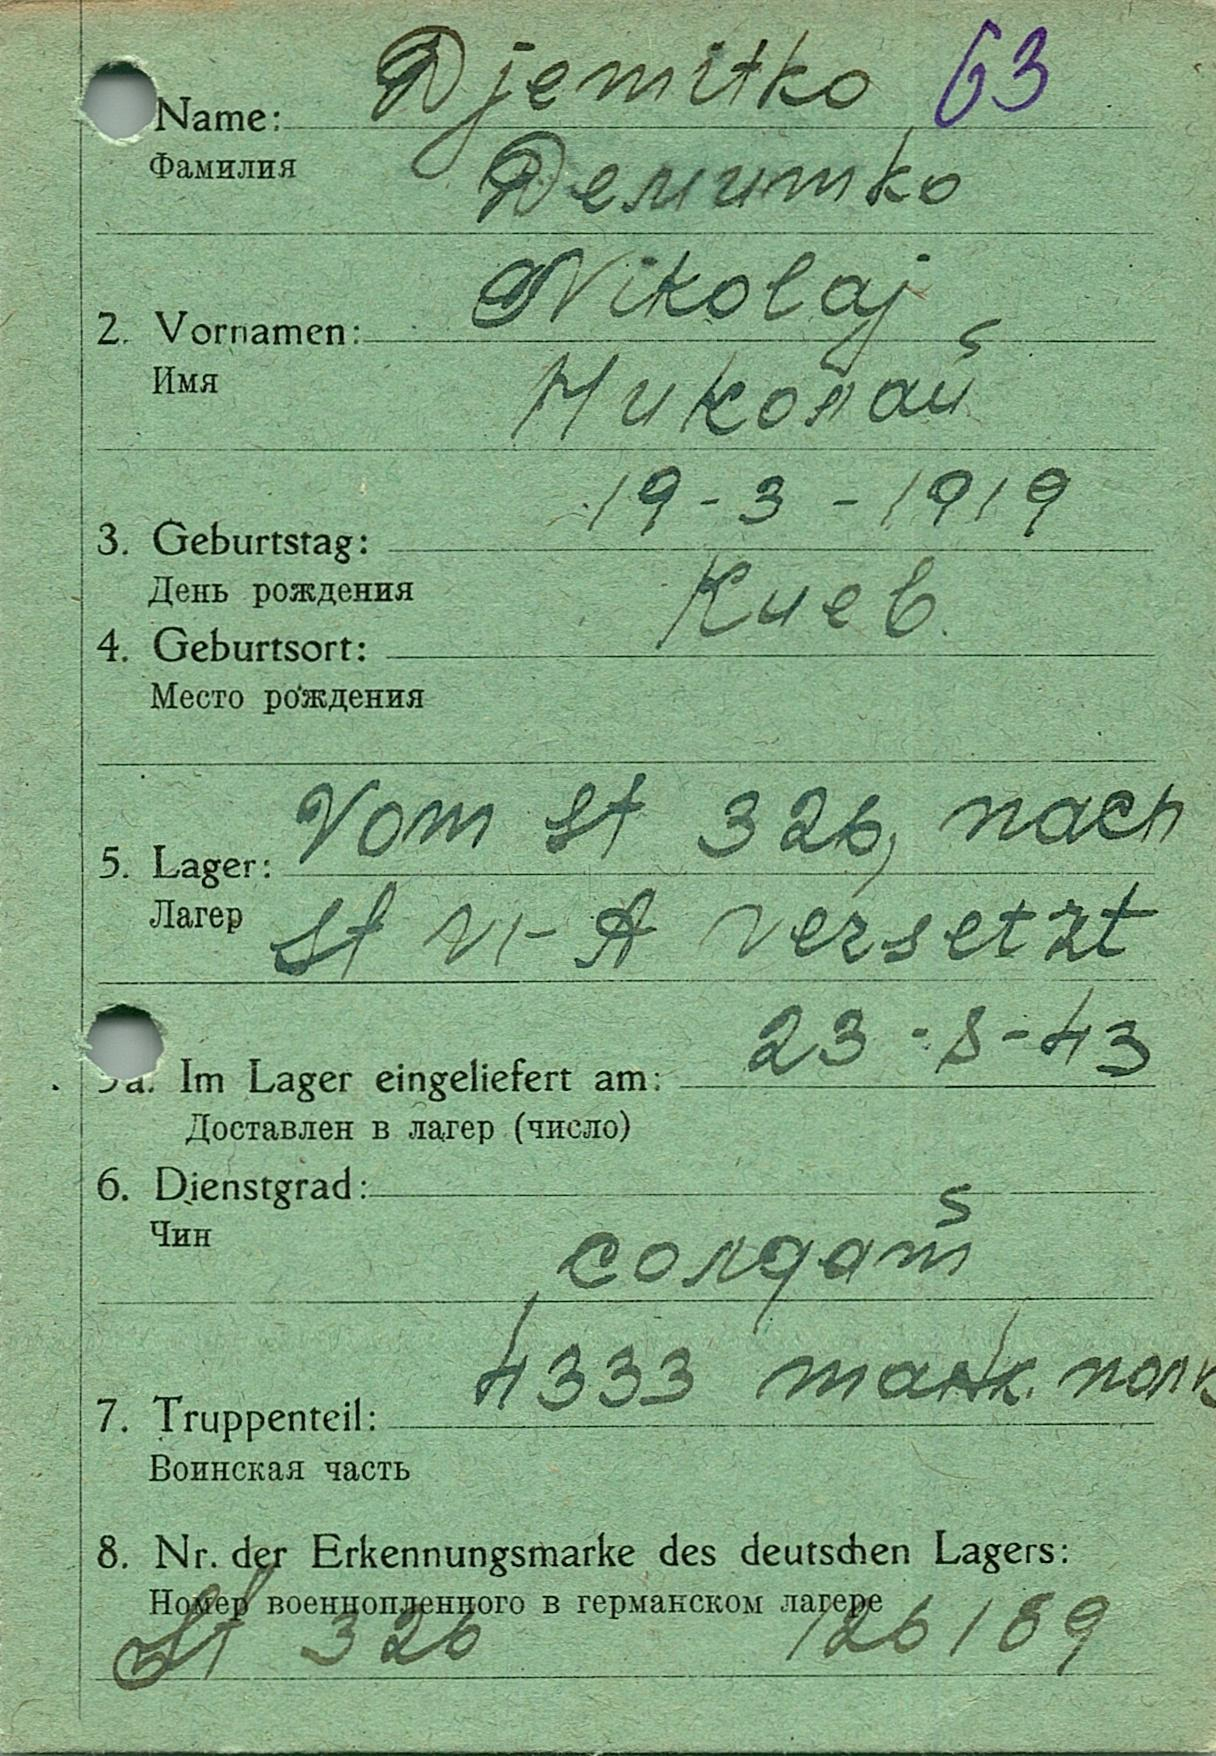 Djemitko 63
Name:
Фамилия
Демитко
Nikolaj
2. Vornamen:
Имя
Николай
19-3-1919
3. Geburtstag:
День рождения
Киев.
4. Geburtsort:
Место рождения
Vom St 326, nach
5. Lager:
Лагер
St VI-A versetzt
23-8-43
5a. Im Lager eingeliefert am:
Доставлен в лагер (число)
6. Dienstgrad:
Чин
солдат
4333 полк
7. Truppenteil:
Воинская часть
8. Nr. der Erkennungsmarke des deutschen Lagers:
Номер военнопленного в германском лагере
St 326 126189